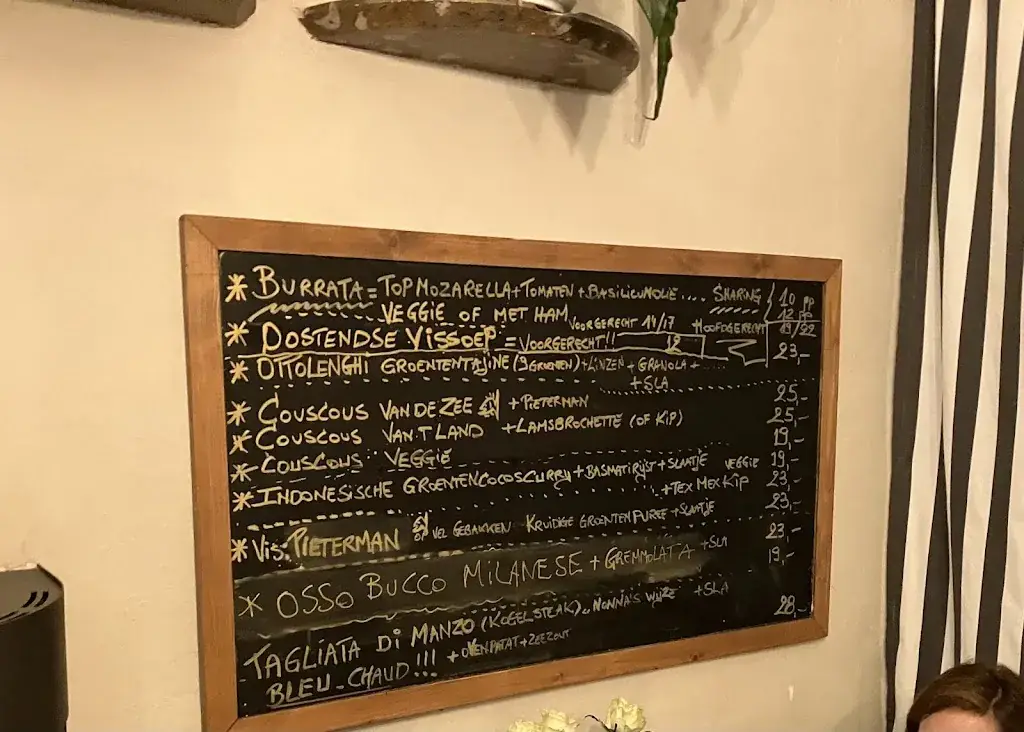 * BURRATA = TOP MOZARELLA + TOMATEN + BASILICUMOLIE .... SHARING 10 PP
VEGGIE OF MET HAM 12 PP
VOORGERECHT 14/17 HOOFDGERECHT 19/22
* OOSTENDSE VISSOEP = VOORGERECHT!! 12 23,-
* OTTOLENGHI GROENTENTAJINE (9 GROENEN) + LINZEN + GRANOLA + ....
+ SLA
* COUSCOUS VAN DE ZEE + PIETERMAN 25,-
* COUSCOUS VAN 'T LAND + LAMSBROCHETTE (OF KIP) 25,-
* COUSCOUS VEGGIE 19,-
* INDONESISCHE GROENTENCOCOSCURRY + BASMATIRIJST + SLAATJE VEGGIE 19,-
+ TEX MEX KIP 23,-
* VIS: PIETERMAN OP VEL GEBAKKEN KRUIDIGE GROENTENPUREE + SLAATJE 23,-
* OSSO BUCCO MILANESE + GREMMOLATA + SLA 23,-
19,-
- TAGLIATA DI MANZO (KOGELSTEAK) NONNA'S WIJZE + SLA 28,-
BLEU - CHAUD!!! + OVENPATAT + ZEEZOUT